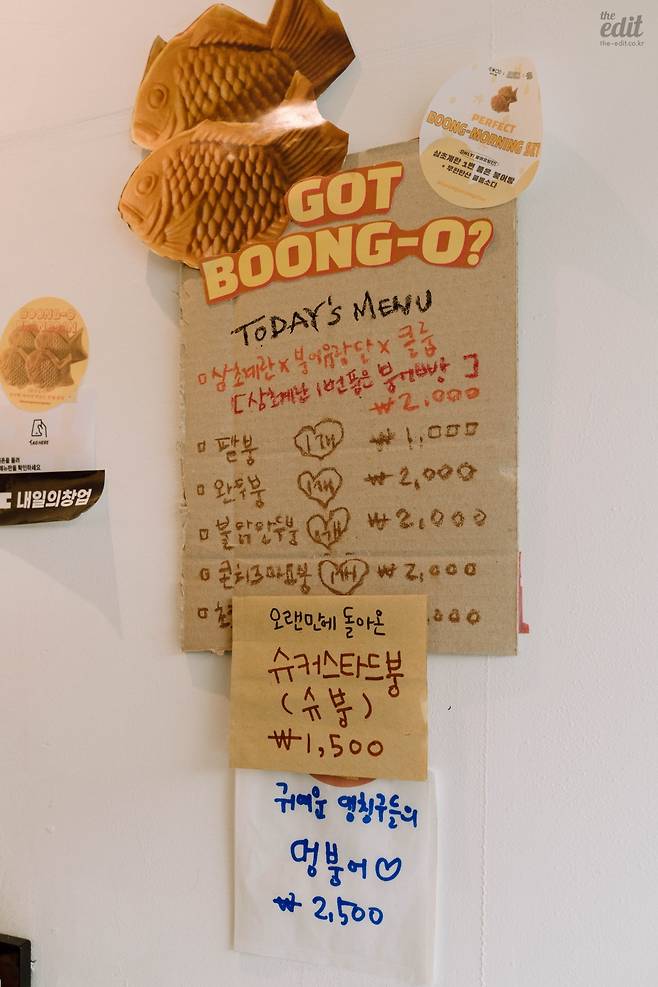 the
edit
the-edit.co.kr
PERFECT
BOONG-MORNING SET
삼초계란 1번 품은 붕어빵
GOT
BOONG-O?
TODAY's MENU
삼초계란 x 붕어유랑단 x 클룹
[삼초계란 1번 품은 붕어빵]
₩2,000
팥붕 1개 ₩1,000
완두붕 1개 ₩2,000
불닭만두붕 1개 ₩2,000
콘치즈마요붕 1개 ₩2,000
오랜만에 돌아온
슈커스타드붕
(슈붕)
₩1,500
귀여운 멍칭구들의
멍붕어♡
₩2,500
BOONG-O
TAG HERE
내일의창업